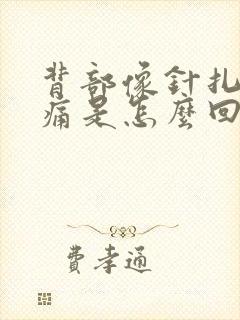 背部像針扎
痛是怎麼回
費孝通